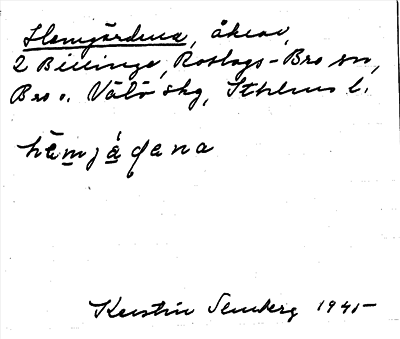 Hemgärdena, åkrar,
2 Billinge, Roslags-Bro sn,
Bro o. Vätö skg, Sthlms l.
hemjáɖena
Kerstin Stenberg 1945